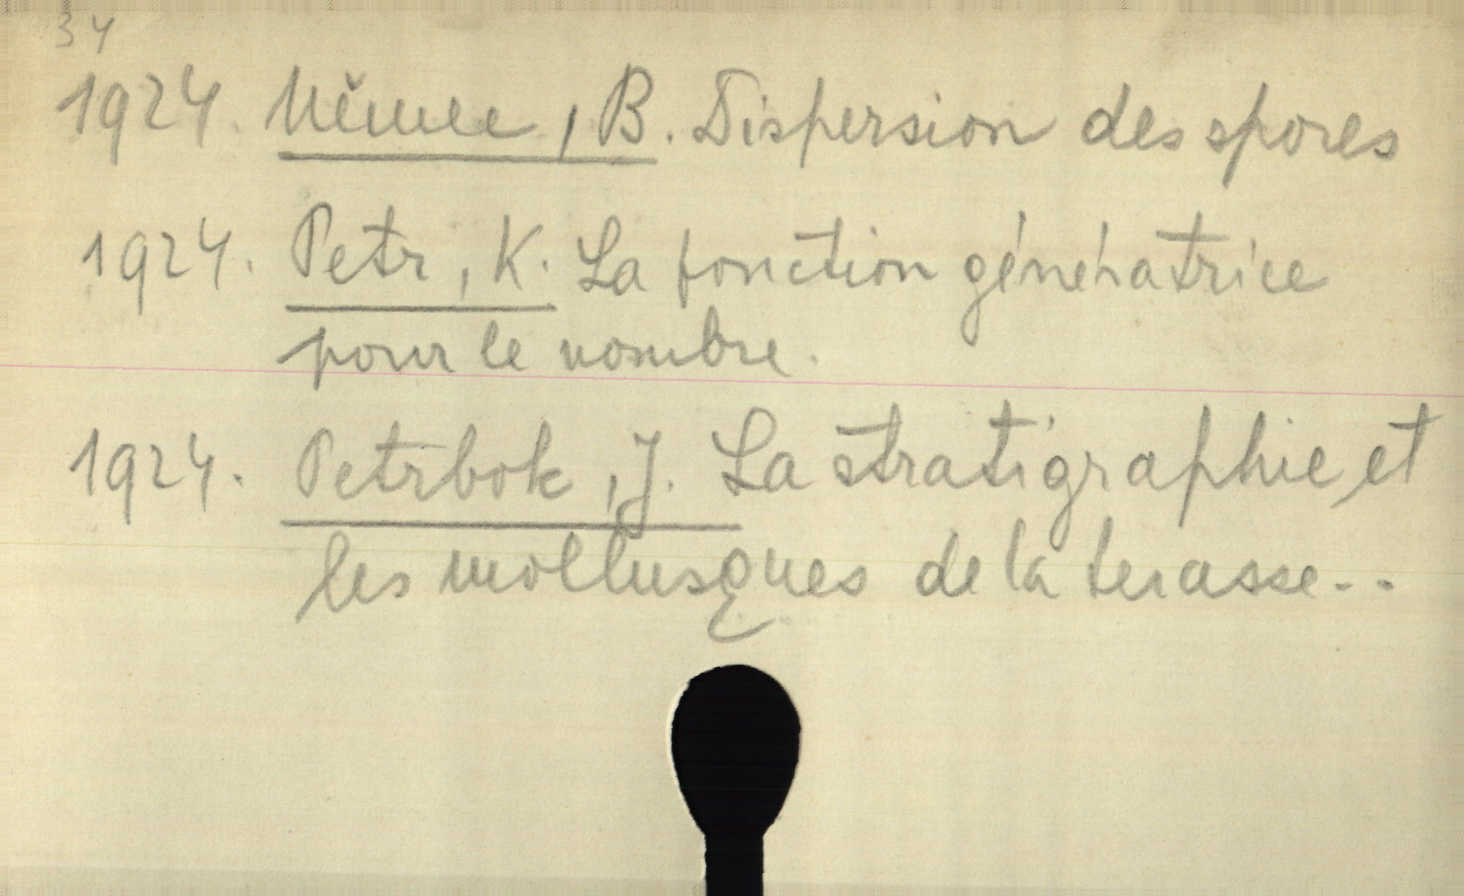 34
1924. Němec, B. Dispersion des spores
1924. Petr, K. La fonction génératrice
pour le nombre.
1924. Petrbok, J. La stratigraphie et
les mollusques de la terasse..